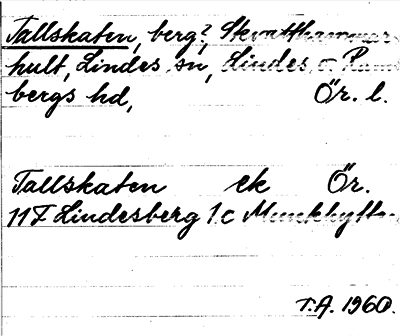 Tallskaten, berg?, Skvatthammar-
hult, Lindes sn, Lindes o Rams-
bergs hd, Ör. l.
Tallskaten ek Ör.
11F Lindesberg 1c Munkhyttan
T.A. 1960.